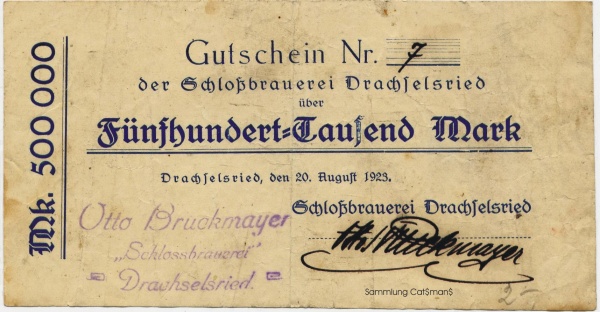 Mk. 500 000
Gutschein Nr. 7
der Schloßbrauerei Drachselsried
über
Fünfhundert=Tausend Mark
Drachselsried, den 20. August 1923.
Schloßbrauerei Drachselsried
Otto Bruckmayer
„Schlossbrauerei"
= Drachselsried. =
Otto Bruckmayer
Sammlung Cat$man$
2-